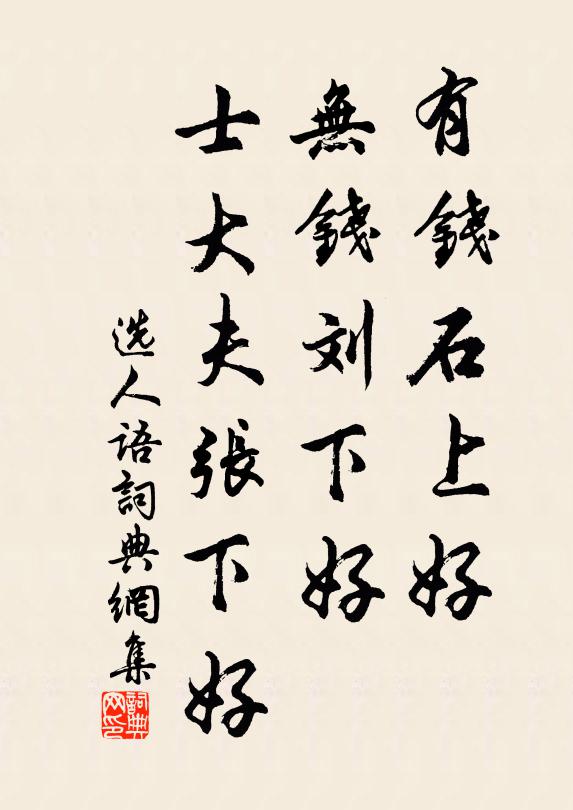 有錢石上好
無錢刘下好
士大夫張下好
选人語詞典網集
詞典网印